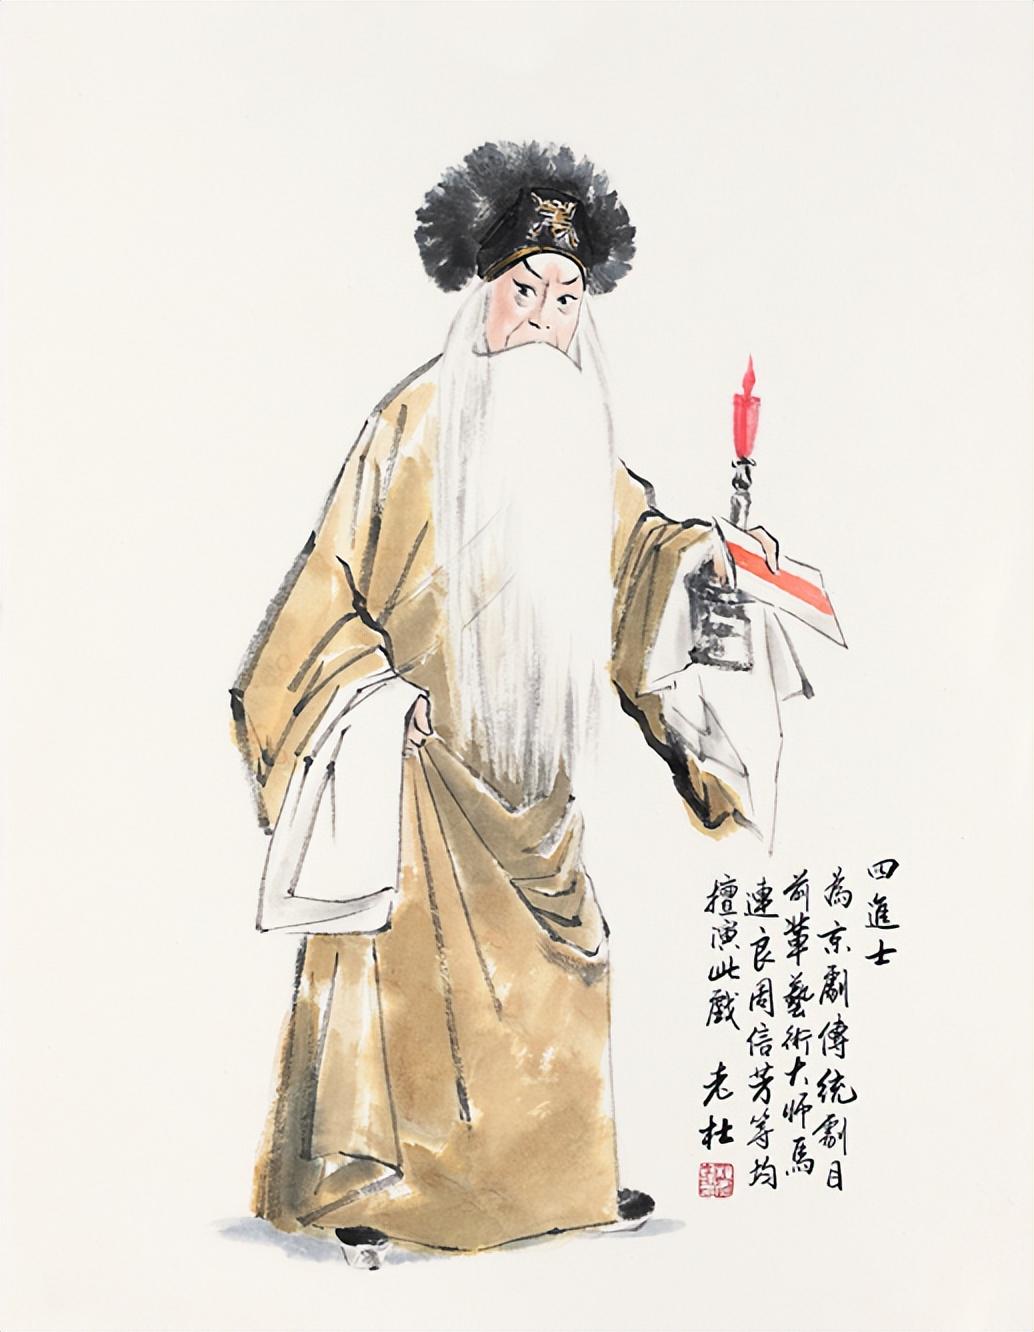 四進士
為京劇傳統劇目
前輩藝術大师馬
連良周信芳等均
擅演此戲
老杜